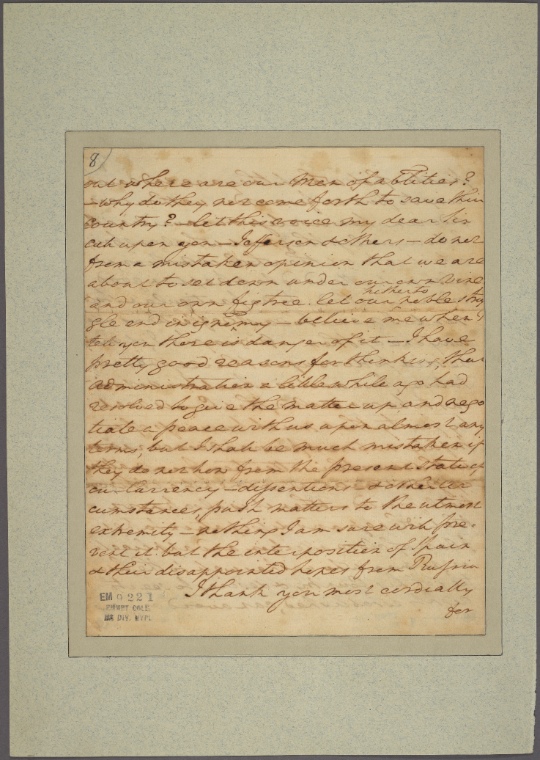 8
out where are our Men of abilities?
- why do they not come forth to save their
country? - let this voice my dear Sir
call upon you - Jefferson & others - do not
from a mistaken opinion that we are
about to set down under our own Vine
hitherto
and our own fig tree. let our noble strug
gle end in ignomy - believe me when I
tell you there is danger of it - I have
pretty good reasons for thinking, that
administration a little while ago had
resolved to give the matter up and nego
tiate a peace with us upon almost any
terms, but I shall be much mistaken if
they do not now from the present state of
our Currency - dissentions & other cir
cumstances push matters to the utmost
extremity - nothing I am sure will pre-
vent it but the interposition of Spain
& their disappointed hopes from Russia
I thank you most cordially
for
EM 0221
EMMET COLL.
MS DIV. NYPL